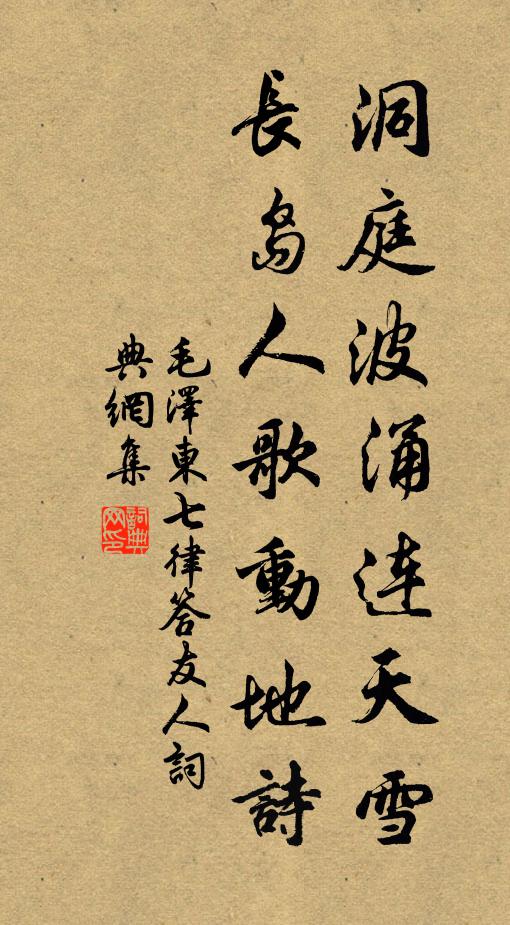 洞庭波涌連天雪
長島人歌動地詩
毛澤東七律答友人詞
典網集
詞典網印